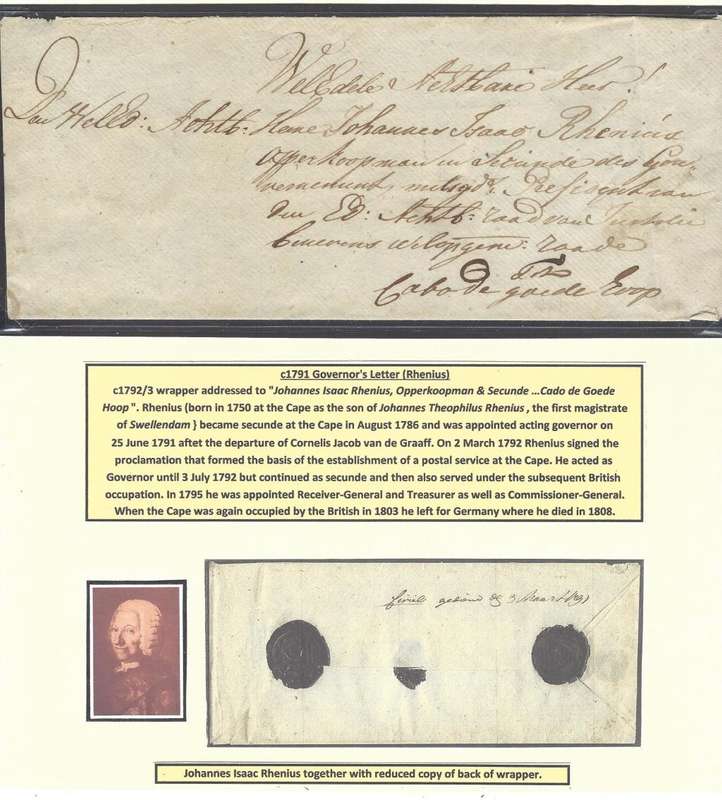 WelEdele Achtbare Heer!
Den WelEd: Achtb: Heere Johannes Isaac Rhenius
opperkoopman en Secunde des Gou-
vernements mitsgds. President van
den Ed: Achtb: raad van Justitie
benevens welopgem: raade
Cabo de goede Hoop
c1791 Governor's Letter (Rhenius)
c1792/3 wrapper addressed to "Johannes Isaac Rhenius, Opperkoopman & Secunde ...Cado de Goede
Hoop". Rhenius (born in 1750 at the Cape as the son of Johannes Theophilus Rhenius, the first magistrate
of Swellendam} became secunde at the Cape in August 1786 and was appointed acting governor on
25 June 1791 aftet the departure of Cornelis Jacob van de Graaff. On 2 March 1792 Rhenius signed the
proclamation that formed the basis of the establishment of a postal service at the Cape. He acted as
Governor until 3 July 1792 but continued as secunde and then also served under the subsequent British
occupation. In 1795 he was appointed Receiver-General and Treasurer as well as Commissioner-General.
When the Cape was again occupied by the British in 1803 he left for Germany where he died in 1808.
3 Maart
Johannes Isaac Rhenius together with reduced copy of back of wrapper.